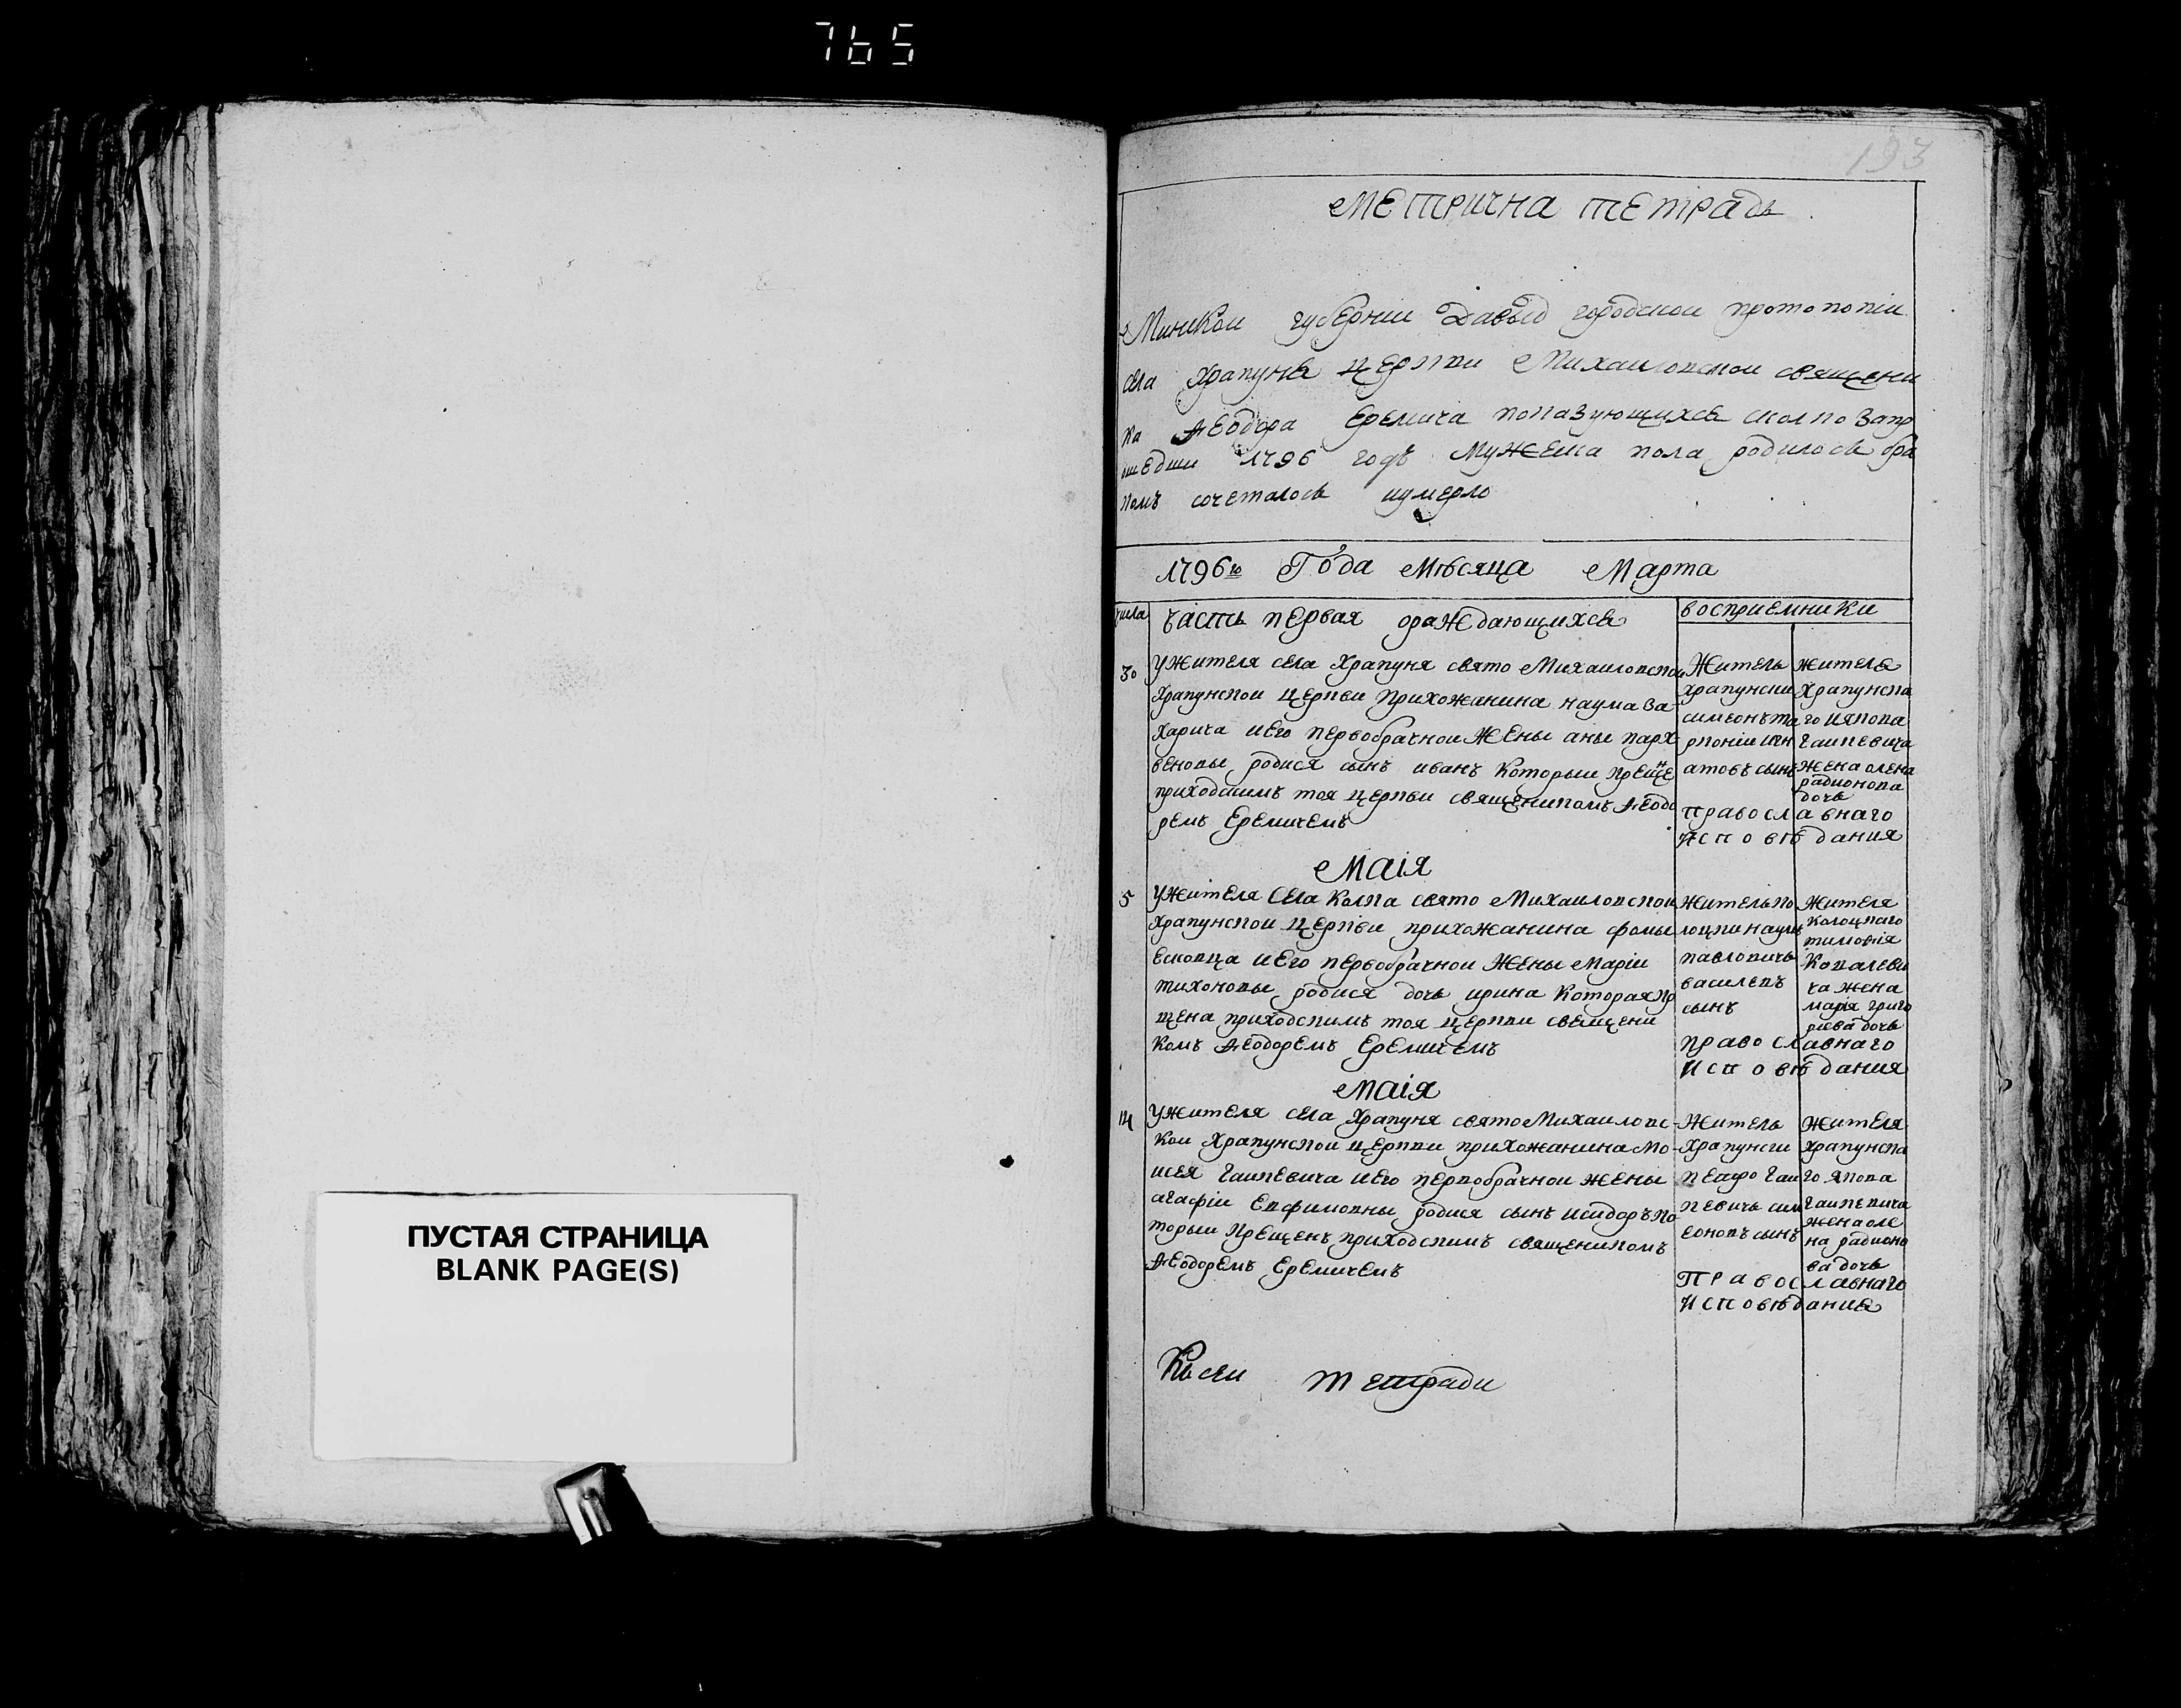 765
193
ПУСТАЯ СТРАНИЦА
BLANK PAGE(S)
Метрична тетрадь
Минкои губернии Давыд городскои протопопіи
села Храпуня церкви Михаиловскои священи
ка Ѳеодора Еремича показующихся сколко запр
шедши 1796 годъ мужеска пола родилось бра
комъ сочеталось иумерло
1796го Года Мѣсяца Марта
числа
часть первая ораждающихся
восприемники
30
Ужителя села Храпуня свято Михаиловскои
Храпунскои церкви прихожанина наума за
харича иего первобрачнои жены аны парх
веновы родися сынъ иванъ которыи крещен
приходскимъ тоя церкви священикомъ Ѳеодо
ремъ Еремичемъ
Житель
храпунски
симеонъ
атовъ сынъ
жителя
храпунска
го
гаипевича
жена олена
радионова
дочь
православнаго
исповѣдания
Маія
5
Ужителя села Колка свято Михаиловскои
Храпунскои церкви прихожанина фомы
иего первобрачнои жены Маріи
тихоновы родися дочь ирина которая кр
щена приходскимъ тоя церкви свещени
комъ Ѳеодоремъ Еремичемъ
житель ко
лоцки наумъ
павловичь
василевъ
сынъ
жителя
колоцкаго
тимофія
Ковалеви
ча жена
марія григо
риева дочь
православнаго
исповѣданія
Маія
14
Ужителя села Храпуня свято Михаиловс
кои Храпунскои церкви прихожанина Мо
исея Гаипевича иего первобрачнои жены
агафіи Евфимовны родися сынъ исидоръ ко
торыи крещенъ приходскимъ священикомъ
Ѳеодоремъ Еремичемъ
Житель
Храпунски
гаи
певичь сим
еоновъ сынъ
жителя
храпунска
го якова
гаипевича
жена оле
на радионо
ва дочь
Православнаго
исповѣданія
Къ сеи тетради